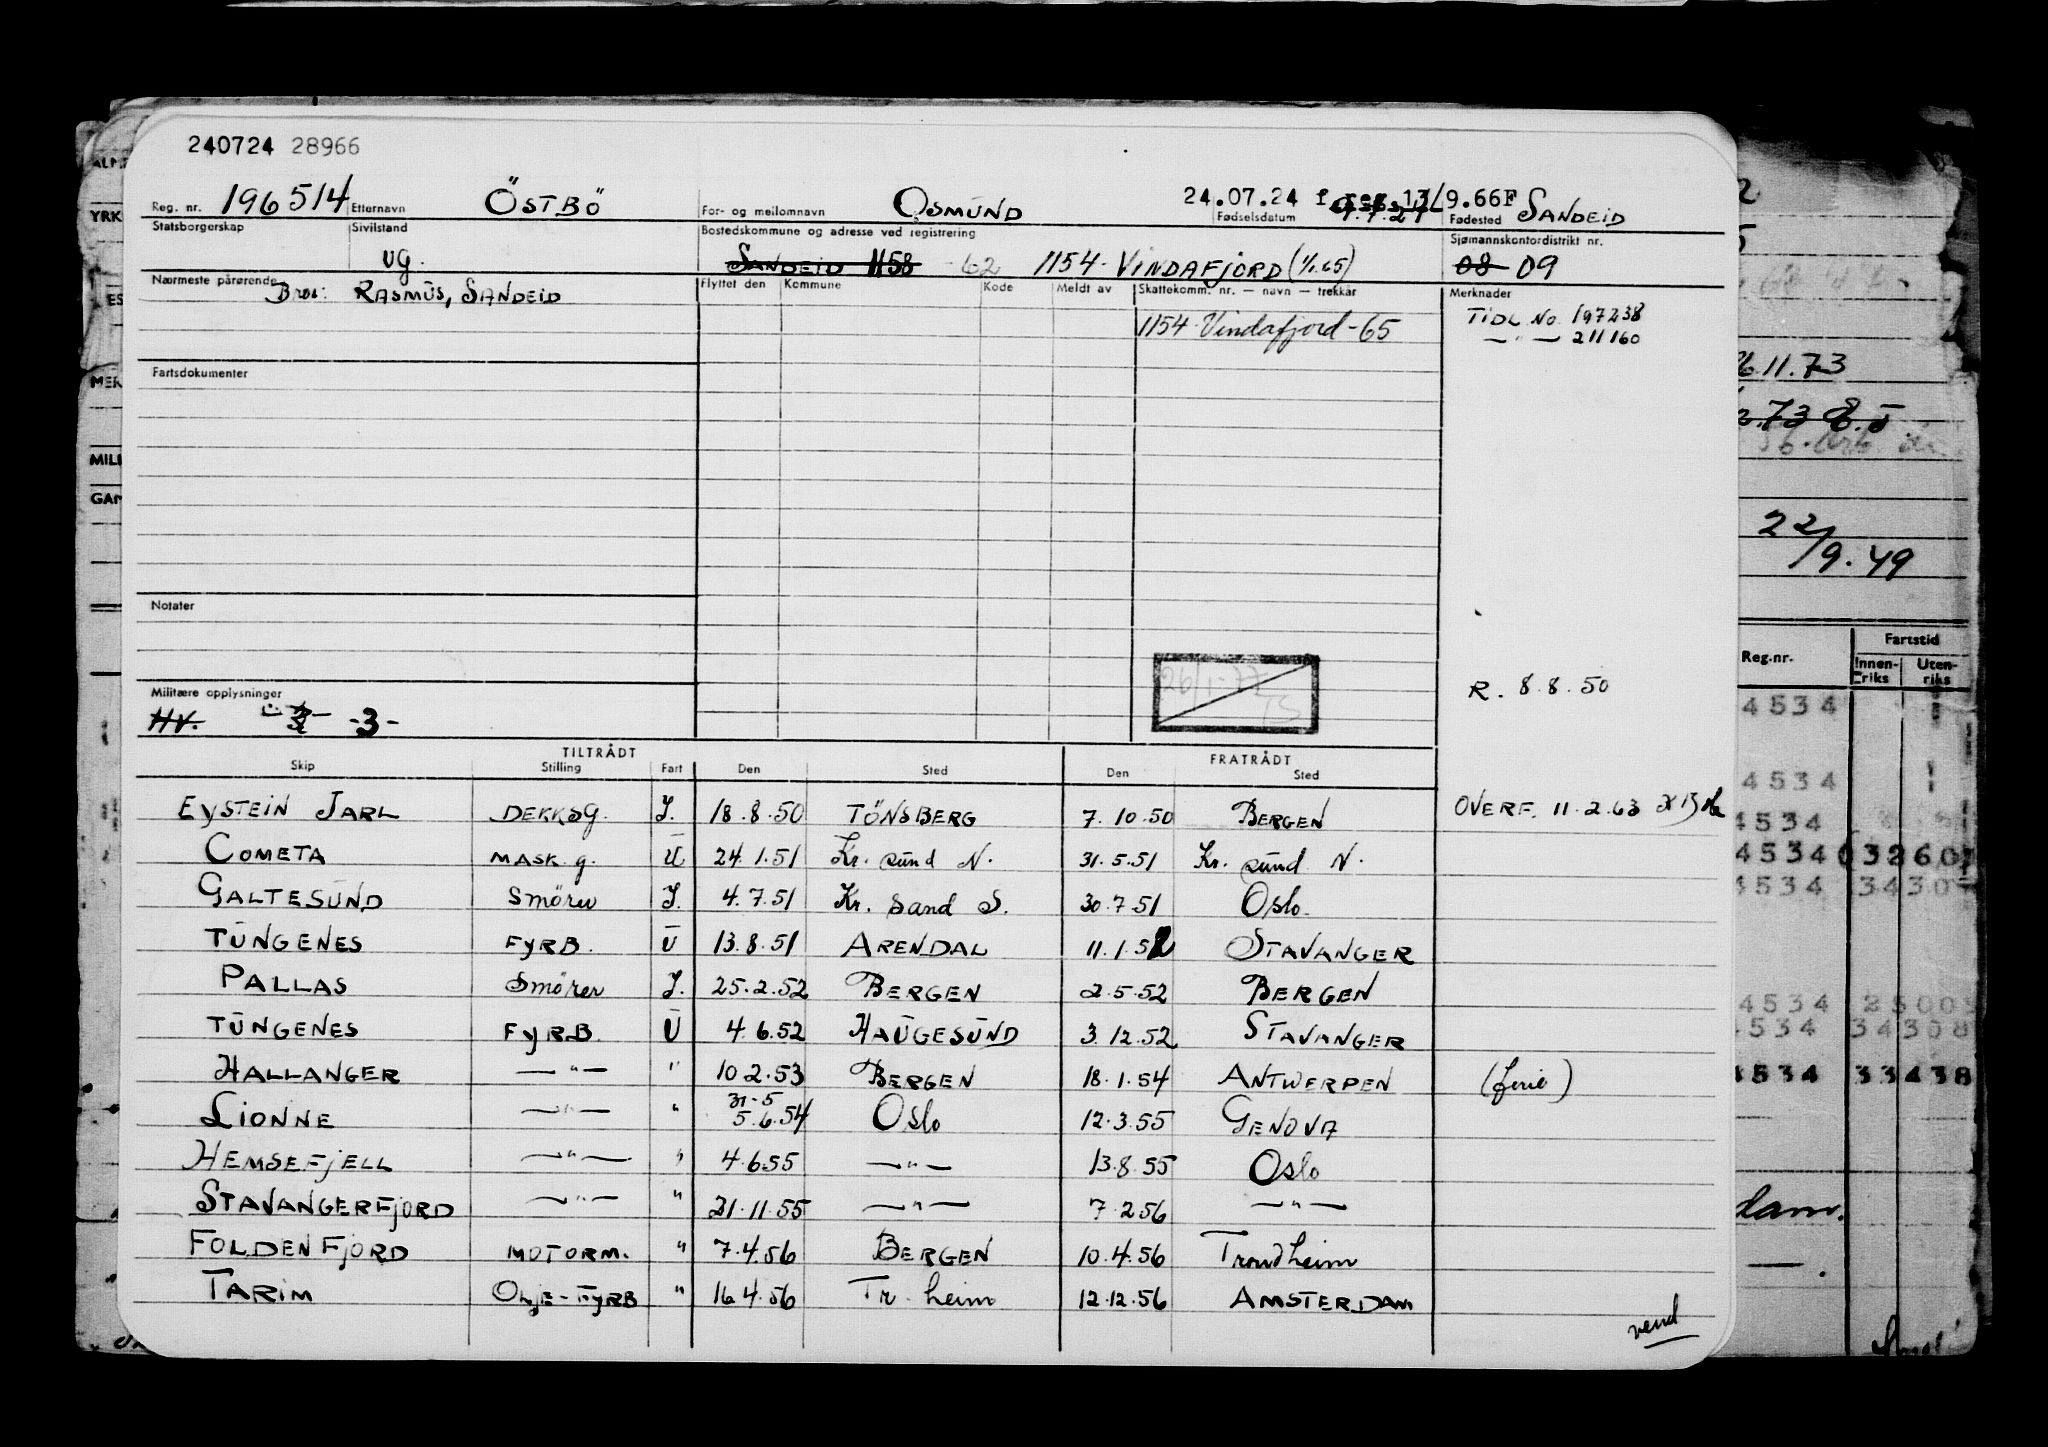 240724 28966
Reg. nr. 196514 Etternavn ÖSTBÖ For- og mellomnavn OSMUND 24.07.24 Fødselsdatum Fødested SANDEID
Statsborgerskap Sivilstand ug. Bostedskommune og adresse ved registrering SANDEID 1158 -62 1154-VINDAFJORD (1/1.65) Sjømannskontordistrikt nr. 08 09
Nærmeste pårørende Bror: RASMUS, SANDEID Flyttet den Kommune Kode Meldt av Skattekomm. nr. — navn — trekkår Merknader
1154 Vindafjord-65 TIDL. No. 197238
—"— 211160
Fartsdokumenter
6.11.73
22/9.49
Notater
Reg.nr. Fartstid
Innenriks Utenriks
R. 8.8.50
26/1-77
Militære opplysninger
HV. -3-
TILTRÅDT FRATRÅDT
Skip Stilling Fart Den Sted Den Sted
EYSTEIN JARL DEKKSG. I. 18.8.50 TÖNSBERG 7.10.50 BERGEN OVERF. 11.2.63
COMETA MASK.g. U 24.1.51 Kr. sund N. 31.5.51 Kr. sund N.
GALTESUND Smörer I. 4.7.51 Kr. Sand S. 30.7.51 Oslo.
TUNGENES FYRB. U 13.8.51 ARENDAL 11.1.52 STAVANGER
PALLAS Smörer I. 25.2.52 BERGEN 2.5.52 BERGEN
TUNGENES FYRB. U 4.6.52 HAUGESUND 3.12.52 STAVANGER
HALLANGER —"— " 10.2.53 BERGEN 18.1.54 ANTWERPEN (ferie)
LIONNE —"— " 31-5 5.6.54 Oslo 12.3.55 GENOVA
HEMSEFJELL —"— " 4.6.55 —"— 13.8.55 Oslo
STAVANGERFJORD —"— " 21.11.55 —"— 7.2.56 —"—
FOLDENFJORD MOTORM. " 7.4.56 BERGEN 10.4.56 Trondheim
TARIM OLJE-FYRB " 16.4.56 Tr. heim 12.12.56 AMSTERDAM
vend